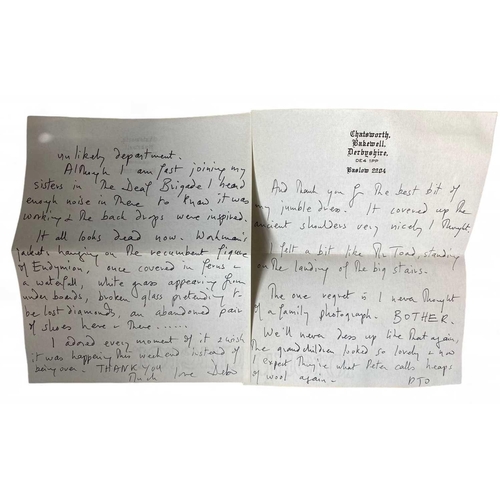 unlikely department.
Although I am fast joining my
sisters in the Deaf Brigade I heard
enough noise in there to know it was
working & the back drops were inspired.
It all looks dead now. Workmen's
jackets hanging on the recumbent figure
of Endymion, once covered in ferns &
a waterfall, white grass appearing from
under boards, broken glass pretending to
be lost diamonds, an abandoned pair
of shoes here & there......
I adored every moment of it & wish
it was happening this weekend instead of
being over. THANK YOU
Much love Debo
Chatsworth,
Bakewell,
Derbyshire.
DE4 1PP
Baslow 2204
And thank you for the best bit of
my jumble dress. It covered up the
ancient shoulders very nicely I thought
I felt a bit like Mr Toad, standing
on the landing of the big stairs.
The one regret is I never thought
of a family photograph. BOTHER.
We'll never dress up like that again,
the grandchildren looked so lovely & now
I expect they're what Peter calls heaps
of wool again.
PTO